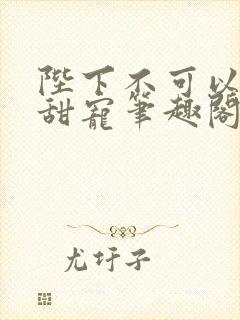 陛下不可以
甜寵筆趣閣
尤圩子